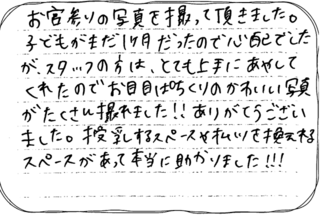 お宮参りの写真を撮って頂きました。
子どもがまだ1ヶ月だったので心配でした
が、スタッフの方は、とても上手にあやして
くれたのでお目目ぱちくりのかわいい写真
がたくさん撮れました!!ありがとうござい
ました。授乳するスペースやオムツを換えれる
スペースがあって本当に助かりました!!!